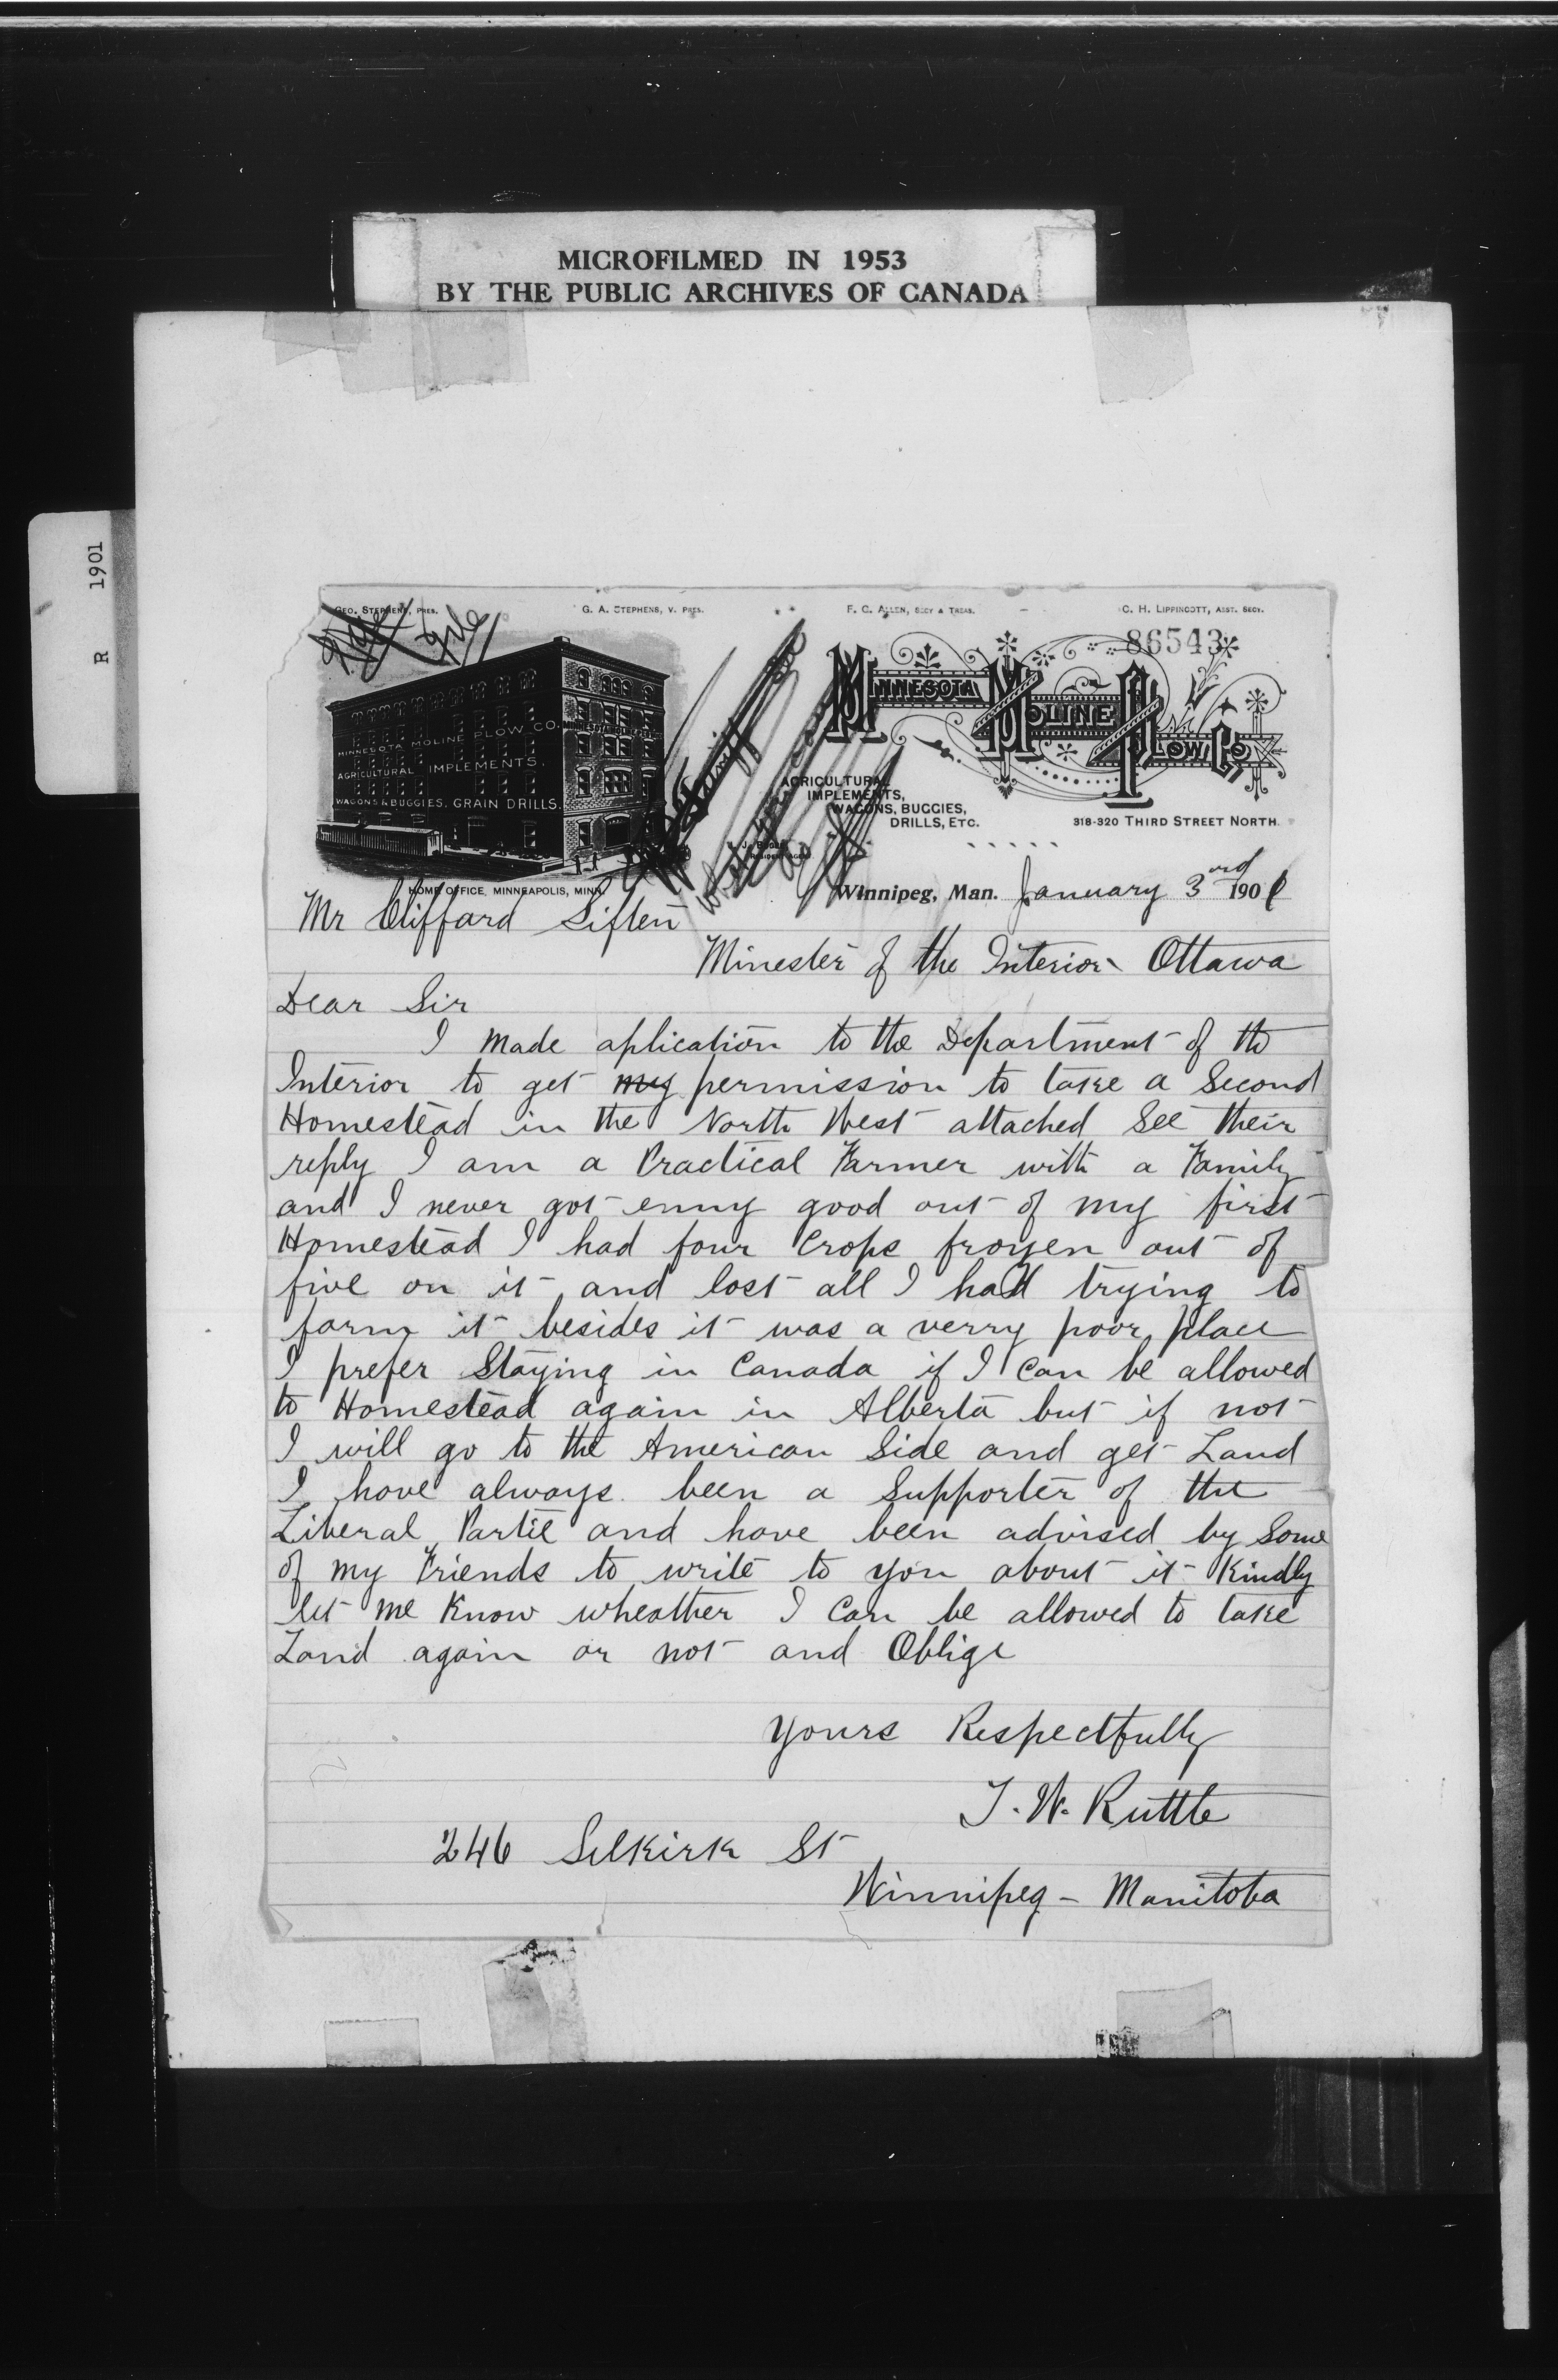 MICROFILMED IN 1953
BY THE PUBLIC ARCHIVES OF CANADA
R 1901
GEO. STEPHENS, PRES. G. A. STEPHENS, V. PRES. F. C. ALLEN, SECY & TREAS. C. H. LIPPINCOTT, ASST. SECY.
86543
MINNESOTA MOLINE PLOW CO.
MINNESOTA MOLINE PLOW CO.
AGRICULTURAL IMPLEMENTS.
WAGONS & BUGGIES. GRAIN DRILLS.
AGRICULTURAL
IMPLEMENTS,
WAGONS, BUGGIES,
DRILLS, ETC.
318-320 THIRD STREET NORTH.
HOME OFFICE, MINNEAPOLIS, MINN.
Winnipeg, Man. January 3rd 1901
Mr Cliffard Siften
Minester of the Interior Ottawa
Dear Sir
I made aplication to the Department of the
Interior to get my permission to take a Second
Homestead in the North West attached See their
reply I am a Practical Farmer with a Family
and I never got enny good out of my first
Homestead I had four Crops frozen out of
five on it and lost all I had trying to
farm it besides it was a verry poor place
I prefer Staying in Canada if I can be allowed
to Homestead again in Alberta but if not
I will go to the American Side and get Land
I have always been a Supporter of the
Liberal Partie and have been advised by Some
of my Friends to write to you about it Kindly
let me Know wheather I Can be allowed to take
Land again or not and Oblige
yours Respectfully
T. W. Ruttle
246 Selkirk St
Winnipeg - Manitoba